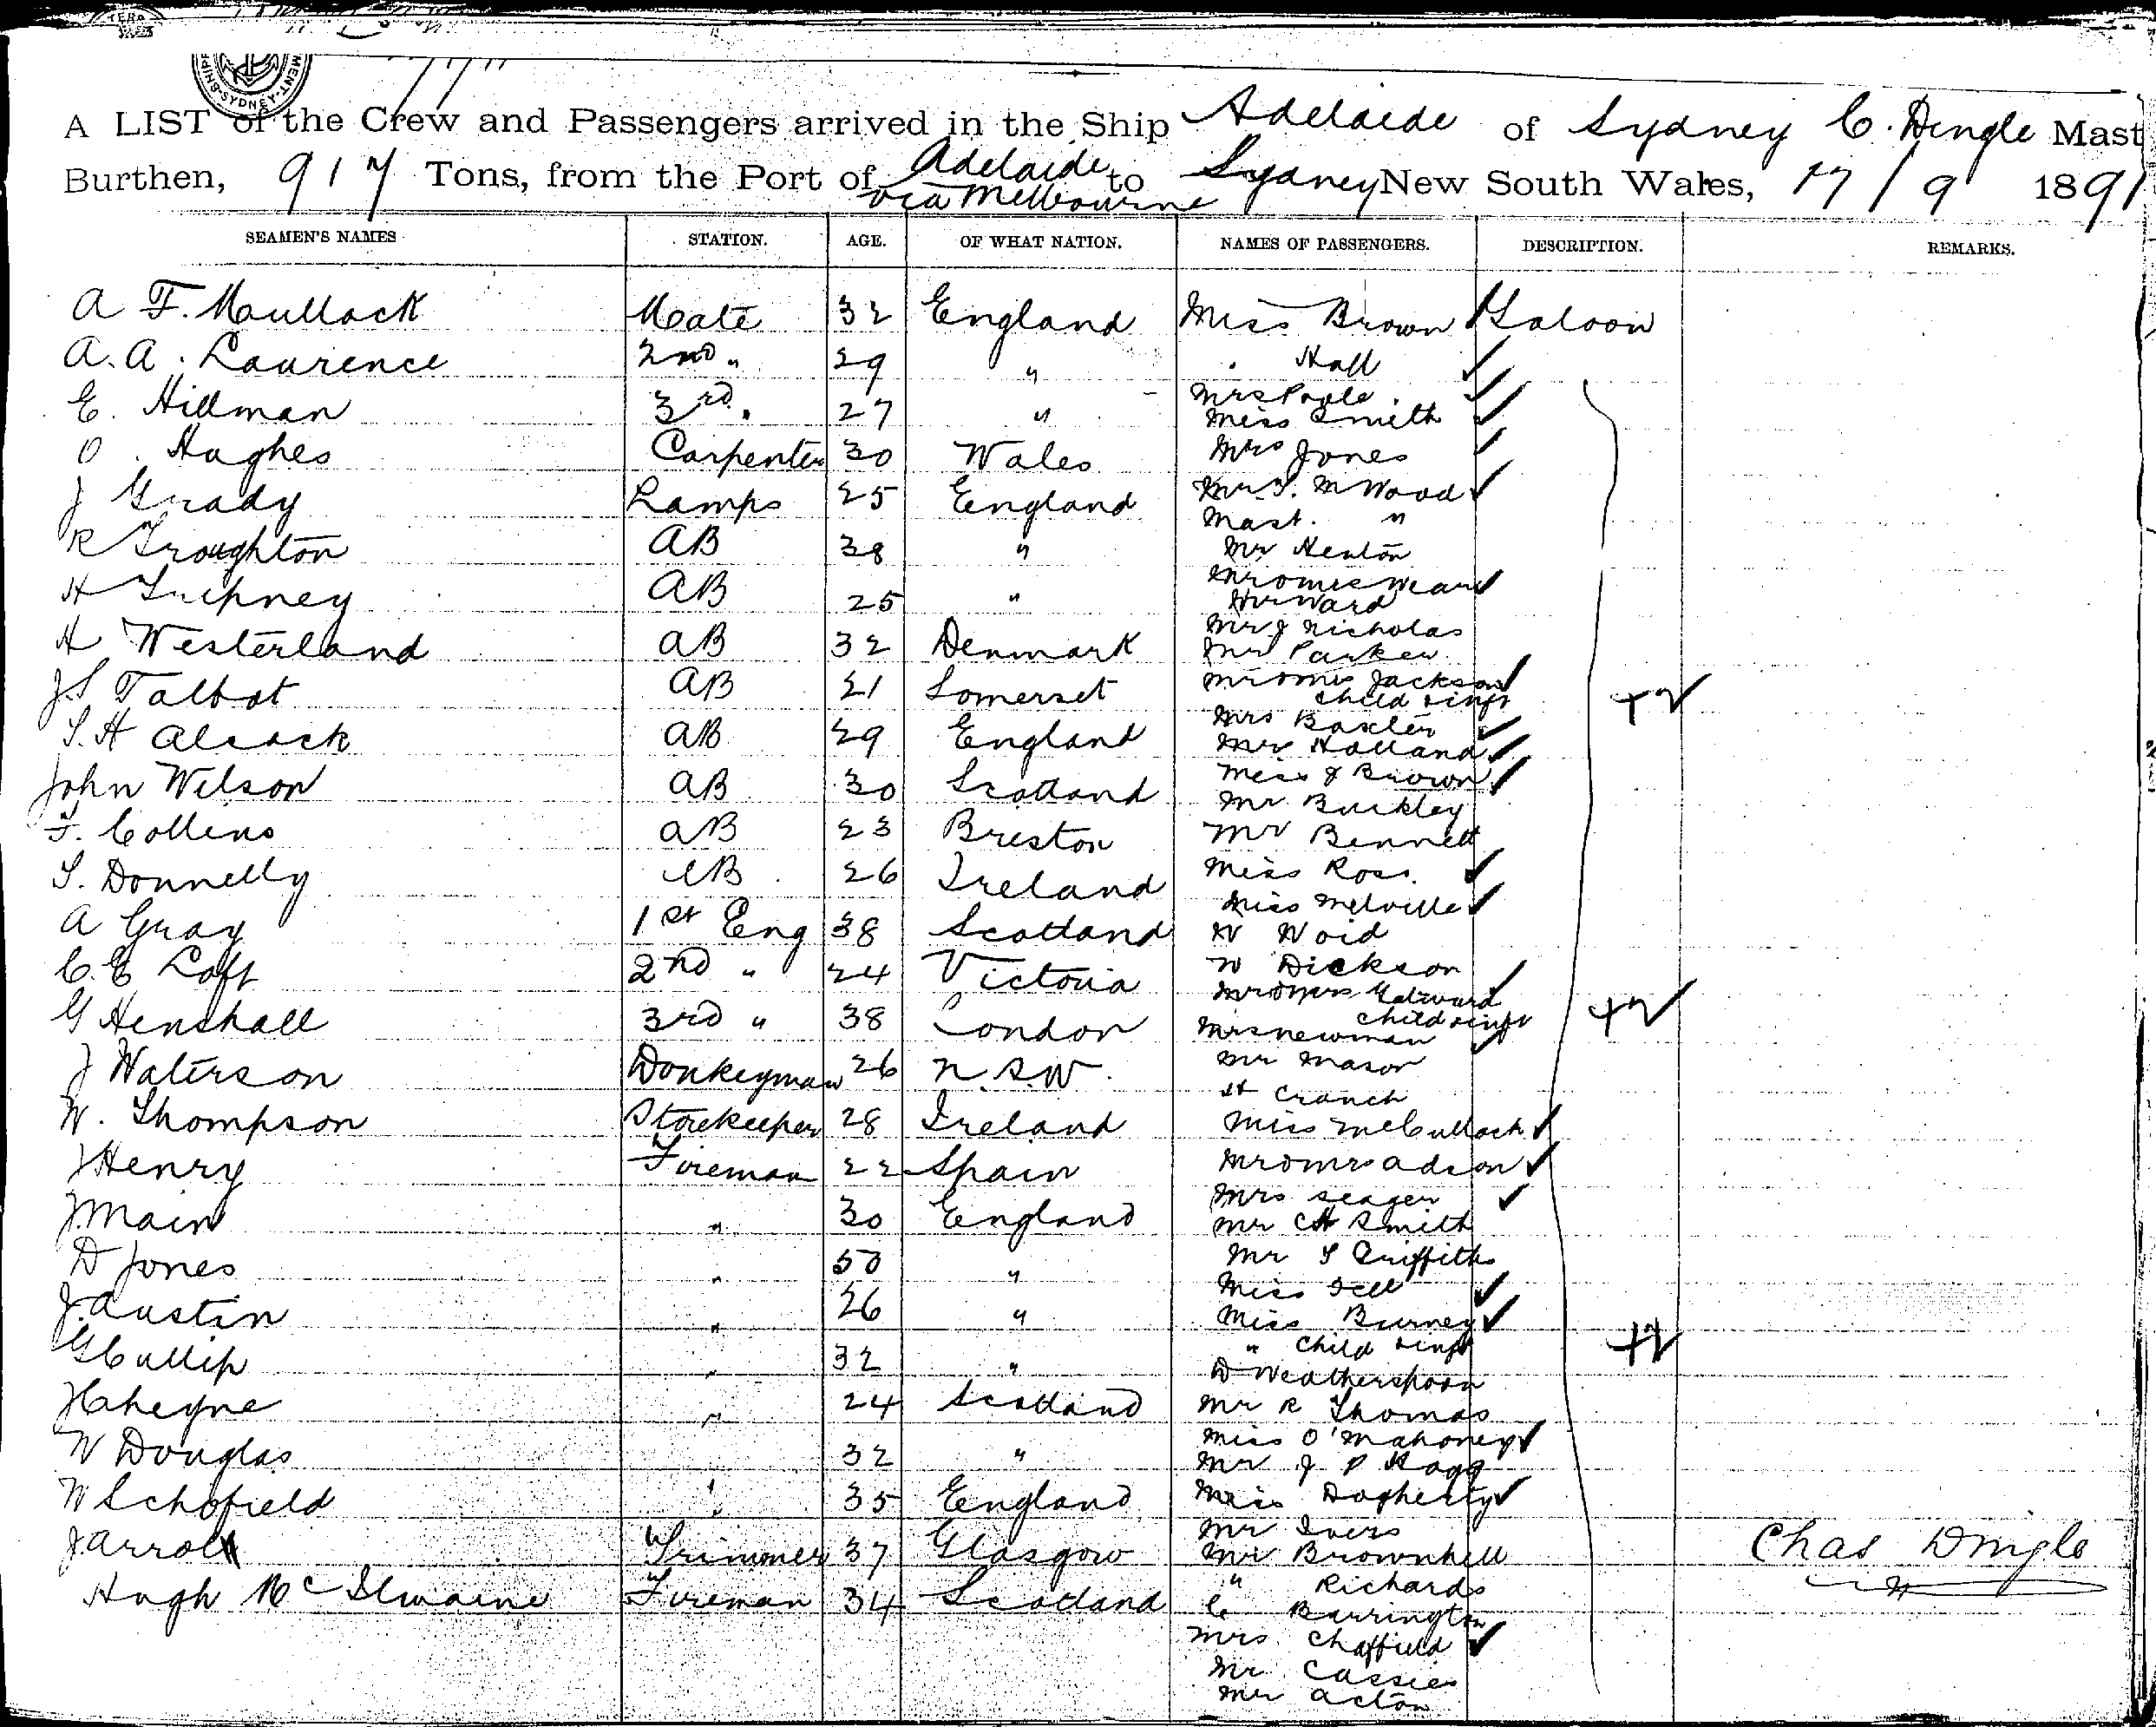 A LIST of the Crew and Passengers arrived in the Ship Adelaide of Sydney C. Dingle Mast
Burthen, 917 Tons, from the Port of Adelaide via Melbourne to Sydney New South Wales, 17/9 1891
SEAMEN'S NAMES STATION. AGE. OF WHAT NATION. NAMES OF PASSENGERS. DESCRIPTION. REMARKS.
A F. Mullock Mate 32 England Miss Brown Saloon
A. A. Laurence 2nd " 29 " Hall
E. Hillman 3rd " 27 " Mrs Poole
Miss Smith
O. Hughes Carpenter 30 Wales Mrs Jones
J Grady Lamps 25 England M Wood
Mast. "
R Troughton AB 38 " Mr Henton
H AB 25 "
Mr Ward
H Westerland AB 32 Denmark Mr J Nicholas
Mr Parker
J.S Talbot AB 21 Somerset Mr & Mrs Jackson
Child & inft
S. H Alcock AB 29 England Mrs Baxter
Mr Holland
John Wilson AB 30 Scotland Miss J Brown
Mr Buckley
F. Collins AB 23 Breston Mr Bennett
S. Donnelly AB 26 Ireland Miss Ross
Miss Melville
A Gray 1st Eng 38 Scotland W Woid
C. E Loft 2nd " 24 Victoria W Dickson
Mr & Mrs
Child & inft
G Henshall 3rd " 38 London Mrs Newman
J Waterson Donkeyman 26 N.S.W. Mr Mason
H Cranch
W. Thompson Storekeeper 28 Ireland Miss McCullock
J Henry Fireman 22 Spain Mr & Mrs Adson
Mrs Seager
J. Main " 30 England Mr C H Smith
D Jones " 50 " Mr S Griffiths
Miss
J. Austin " 26 " Miss Burney
" Child & inft
G Cullip " 32 " D Weatherspoon
J Cheyne " 24 Scotland Mr R Thomas
Miss O'Mahoney
W Douglas 32 " Mr J P Hogg
W Schofield " 35 England Miss Dogherty
Mr Ivers
J Arroll Trimmer 37 Glasgow Mr Brownhill
" Richards
Hugh McIlwaine Fireman 34 Scotland C Barrington
Mrs Chaffield
Mr Cassies
Mr Acton
Chas Dingle